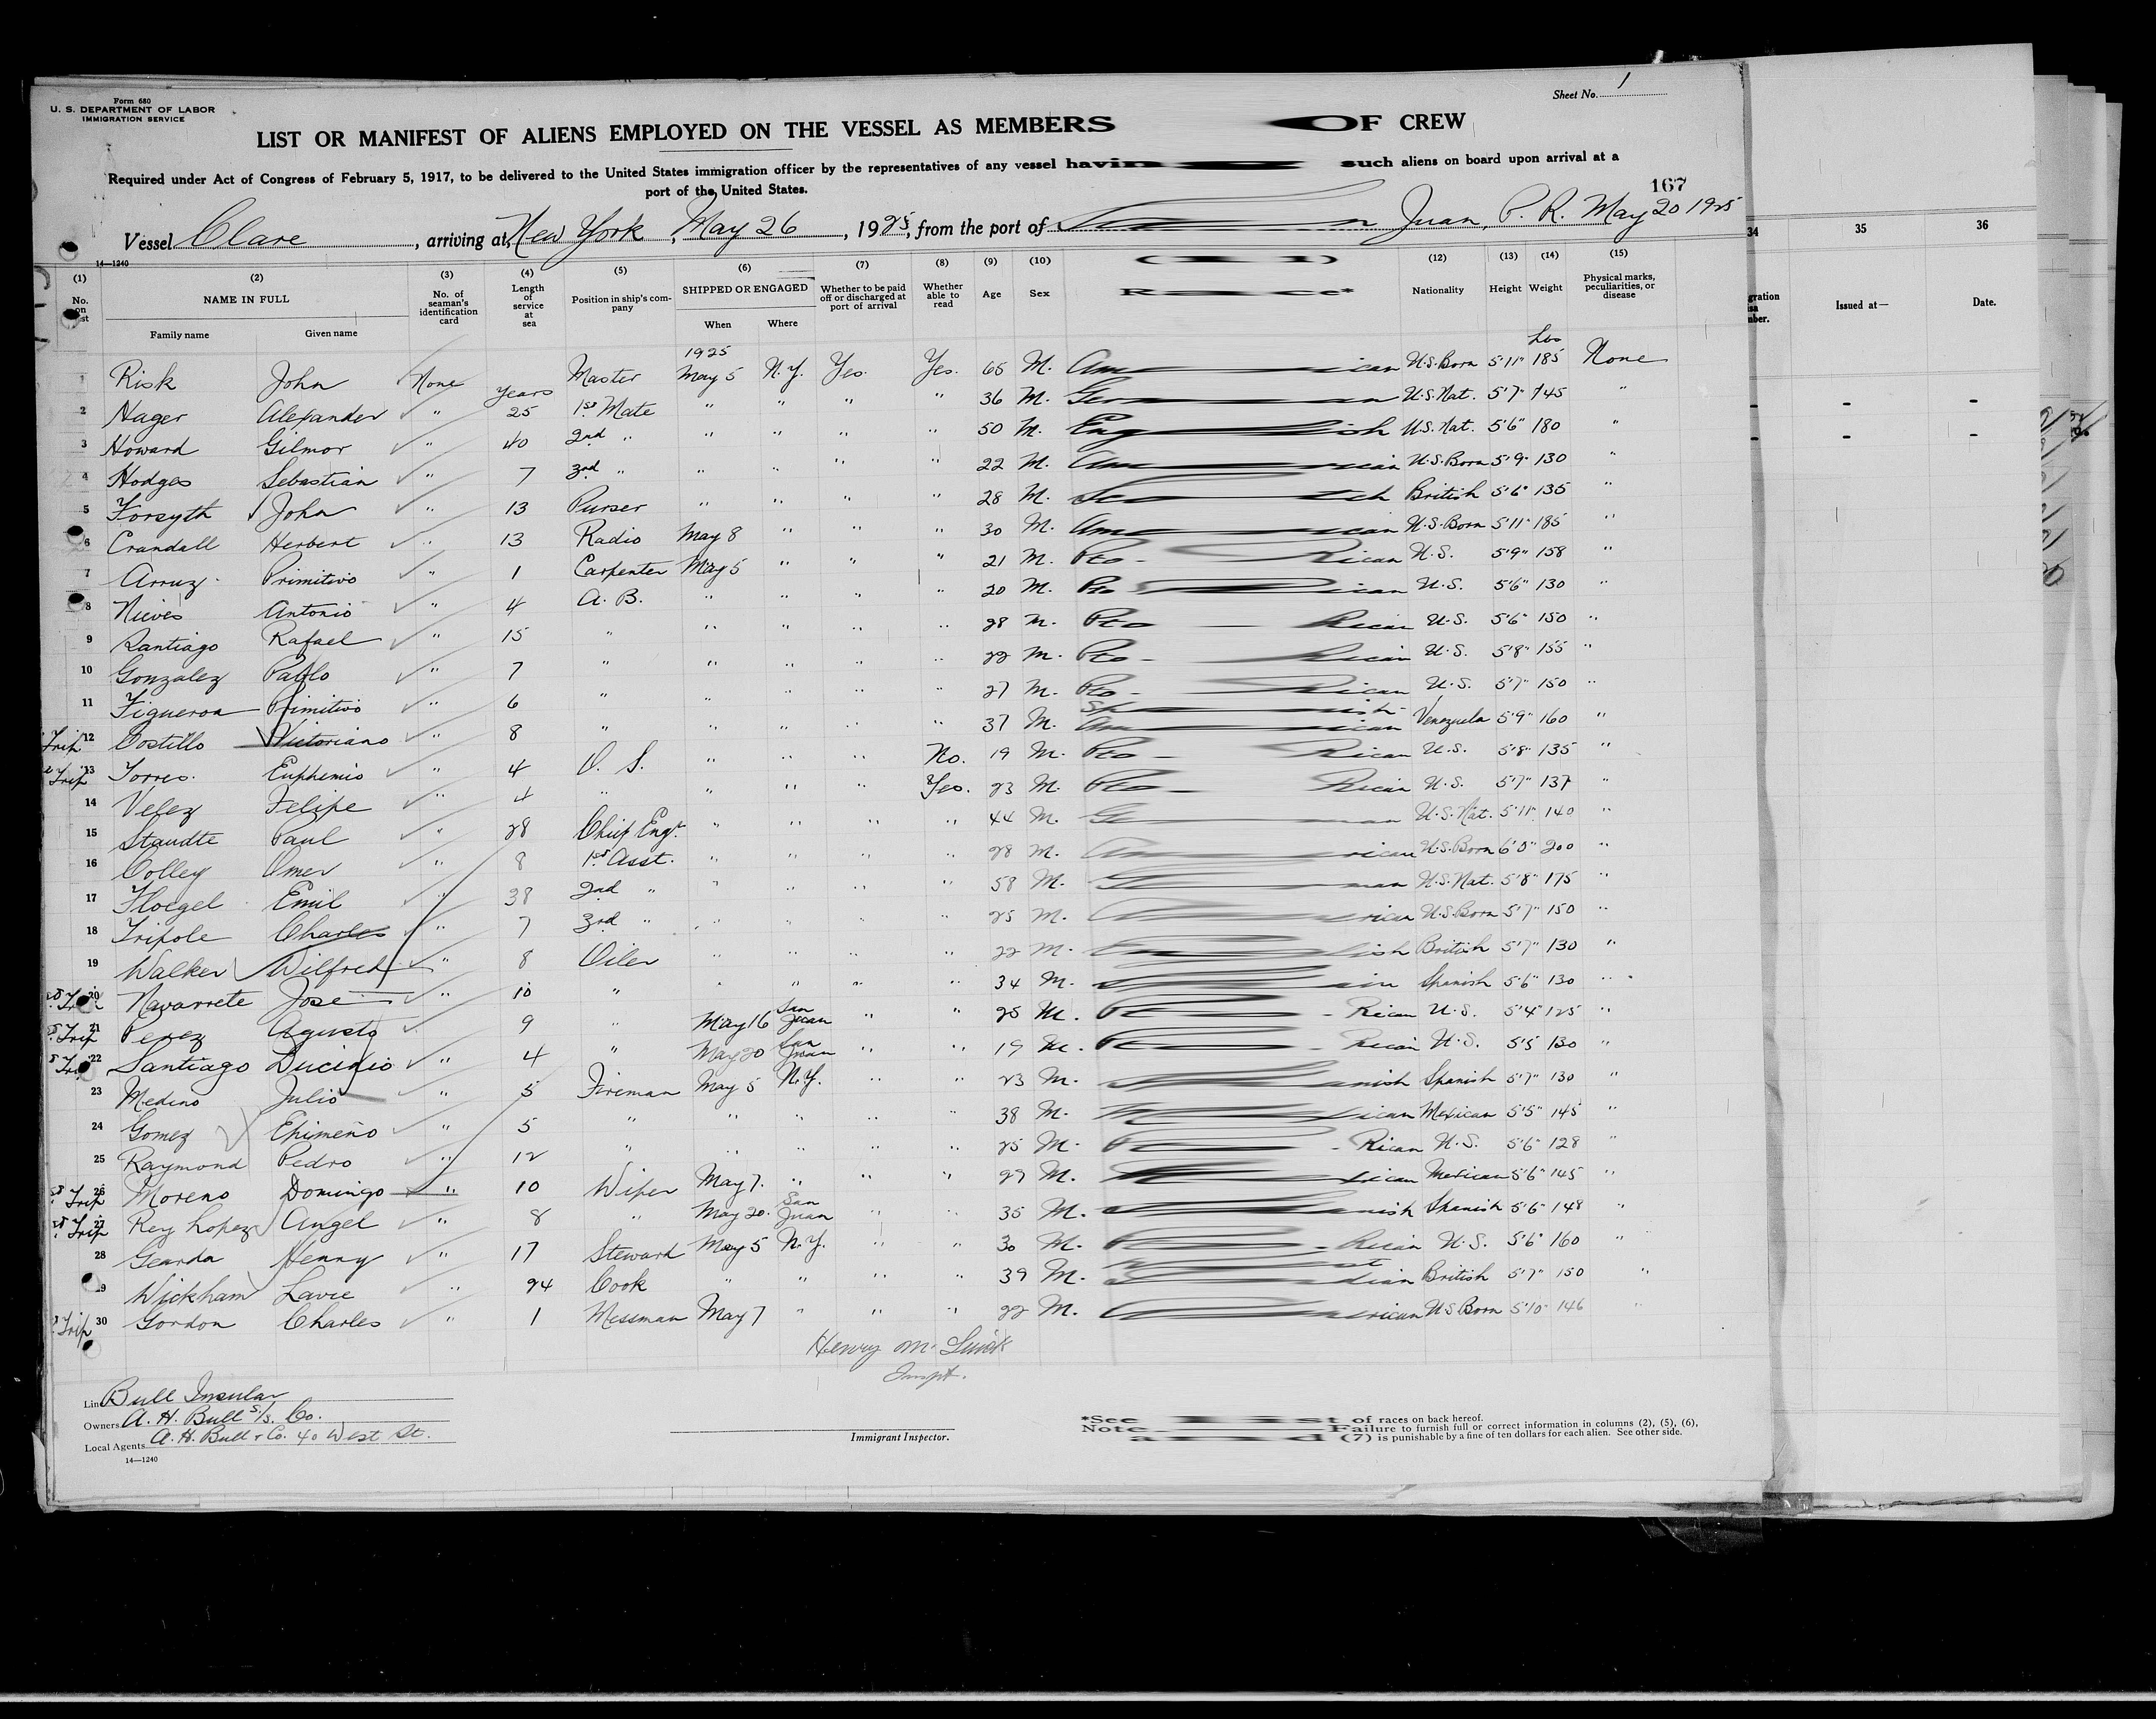 Form 680
U. S. DEPARTMENT OF LABOR
IMMIGRATION SERVICE
Sheet No. 1
LIST OR MANIFEST OF ALIENS EMPLOYED ON THE VESSEL AS MEMBERS OF CREW
Required under Act of Congress of February 5, 1917, to be delivered to the United States immigration officer by the representatives of any vessel having such aliens on board upon arrival at a
port of the United States.
167
Vessel Clare, arriving at New York, May 26, 1925, from the port of San Juan, P. R. May 20 1925
14—1240
(1) (2) (3) (4) (5) (6) (7) (8) (9) (10) (11) (12) (13) (14) (15)
No. on list NAME IN FULL Family name Given name No. of seaman's identification card Length of service at sea Position in ship's company SHIPPED OR ENGAGED When Where Whether to be paid off or discharged at port of arrival Whether able to read Age Sex Race* Nationality Height Weight Physical marks, peculiarities, or disease
34 35 36
Issued at— Date.
1925 Lbs
1 Risk John None Master May 5 N.Y. Yes. Yes. 65 M. American U.S. Born 5'11" 185 None
2 Hager Alexander " years 25 1st Mate " " " " 36 M. German U.S. Nat. 5'7" 145 "
3 Howard Gilmor " 40 2nd " " " " " 50 M. English U.S. Nat. 5'6" 180 "
4 Hodges Sebastian " 7 3rd " " " " " 22 M. American U.S. Born 5'9" 130 "
5 Forsyth John " 13 Purser " " " " 28 M. Scotch British 5'6" 135 "
6 Crandall Herbert " 13 Radio May 8 " " " 30 M. American U.S. Born 5'11" 185 "
7 Arruz Primitivo " 1 Carpenter May 5 " " " 21 M. Pto - Rican U.S. 5'9" 158 "
8 Nieves Antonio " 4 A. B. " " " " 20 M. Pto Rican U.S. 5'6" 130 "
9 Santiago Rafael " 15 " " " " " 28 M. Pto - Rican U.S. 5'6" 150 "
10 Gonzalez Pablo " 7 " " " " " 22 M. Pto - Rican U.S. 5'8" 155 "
11 Figueroa Primitivo " 6 " " " " " 27 M. Pto - Rican U.S. 5'7" 150 "
Trip 12 Costillo Victoriano " 8 " " " " " 37 M. Spanish American Venezuela 5'9" 160 "
Trip 13 Torres Euphemio " 4 O. S. " " " No. 19 M. Pto - Rican U.S. 5'8" 135 "
14 Velez Felipe " 4 " " " " Yes. 23 M. Pto - Rican U.S. 5'7" 137 "
15 Staudte Paul " 28 Chief Engr. " " " " 44 M. German U.S. Nat. 5'11" 140 "
16 Colley Omer " 8 1st Asst. " " " " 28 M. American U.S. Born 6'0" 200 "
17 Floegel Emil " 38 2nd " " " " " 58 M. German U.S. Nat. 5'8" 175 "
18 Tripole Charles " 7 3rd " " " " " 25 M. American U.S. Born 5'7" 150 "
19 Walker Wilfred " 8 Oiler " " " " 22 M. English British 5'7" 130 "
Trip 20 Navarrete Jose " 10 " " " " " 34 M. Spanish 5'6" 130 "
Trip 21 Perez Agusto 9 " May 16 San Juan " " 25 M. Pto - Rican U.S. 5'4" 125 "
Trip 22 Santiago Ducinio " 4 " May 20 San Juan " " 19 M. Pto - Rican U.S. 5'5 130 "
23 Medino Julio " 5 Fireman May 5 N.Y. " " 23 M. Spanish Spanish 5'7" 130 "
24 Gomez Epimeno " 5 " " " " " 38 M. Mexican Mexican 5'5" 145 "
25 Raymond Pedro " 12 " " " " " 25 M. Pto - Rican U.S. 5'6" 128 "
Trip 26 Moreno Domingo " 10 Wiper May 7. " " " 27 M. Mexican Mexican 5'6" 145 "
Trip 27 Rey Lopez Angel " 8 " May 20. San Juan " " 35 M. Spanish Spanish 5'6" 148 "
28 Gearda Henny " 17 Steward May 5 N.Y. " " 30 M. Pto - Rican U.S. 5'6" 160 "
29 Wickham Lavie " 24 Cook " " " " 39 M. West Indian British 5'7" 150 "
Trip 30 Gordon Charles " 1 Messman May 7 " " " 22 M. American U.S. Born 5'10" 146 "
Henry
Inspt.
Line Bull Insular
Owners A. H. Bull S/S. Co.
Local Agents A. H. Bull & Co. 40 West St.
14—1240
Immigrant Inspector.
*See list of races on back hereof.
Note Failure to furnish full or correct information in columns (2), (5), (6),
and (7) is punishable by a fine of ten dollars for each alien. See other side.